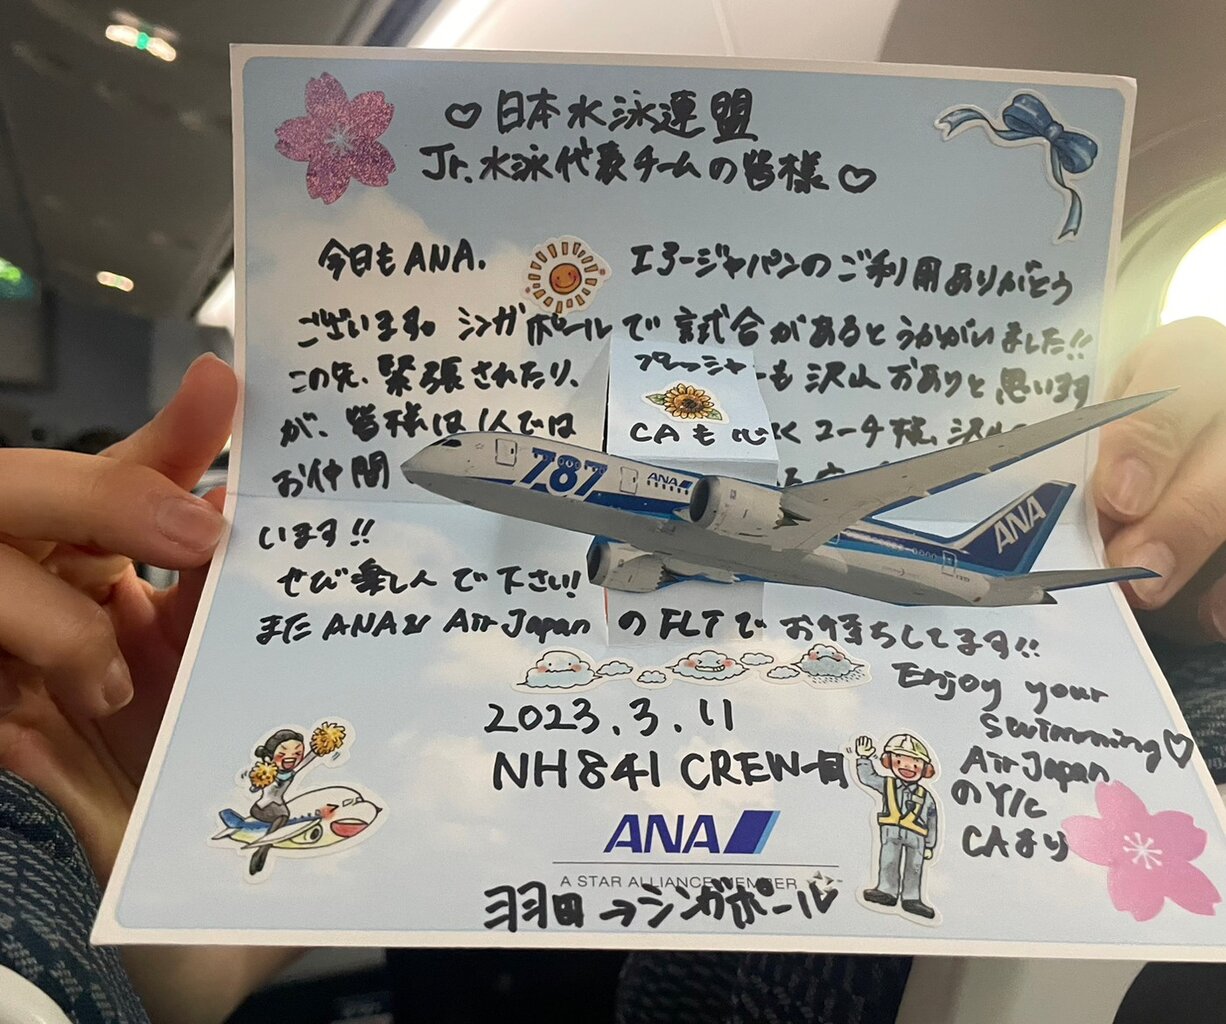 ♡日本水泳連盟
Jr.水泳代表チームの皆様♡
今日もANA. エアージャパンのご利用ありがとう
ございます。シンガポールで試合があるとうかがいました!!
この先、緊張されたり、プレッシャーも沢山おありと思います
が、皆様は1人では
CAも心 コーチ様、
お仲間
います!!
ぜひ楽しんで下さい!
またANAや Air Japan のFLTでお待ちしてます!!
787
ANA
ANA
2023.3.11
NH841 CREW一同
Enjoy your
swimming♡
Air Japan
のY/C
CAより
ANA
A STAR ALLIANCE MEMBER
羽田→シンガポール